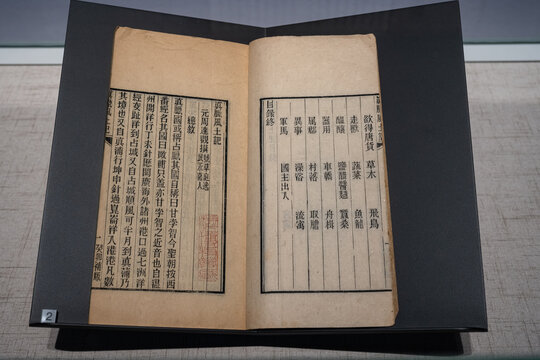 欲得唐貨　草木　飛鳥
走獸　蔬菜　魚龍
醖釀　鹽醋醬麪　蠶桑
器用　車轎　舟楫
屬郡　村落　取膽
異事　澡浴　流寓
軍馬　國主出入
目錄終
眞臘風土記
元周達觀撰
總敘
眞臘國或稱占臘其國自稱曰甘孛智今聖朝按西
番經名其國曰澉浦只蓋亦甘孛智之近音也自溫
州開洋行丁未針歷閩廣海外諸州港口過七洲洋
經交趾洋到占城又自占城順風可半月到眞蒲乃
其境也又自眞蒲行坤申針過崑崙洋入港港凡數
2